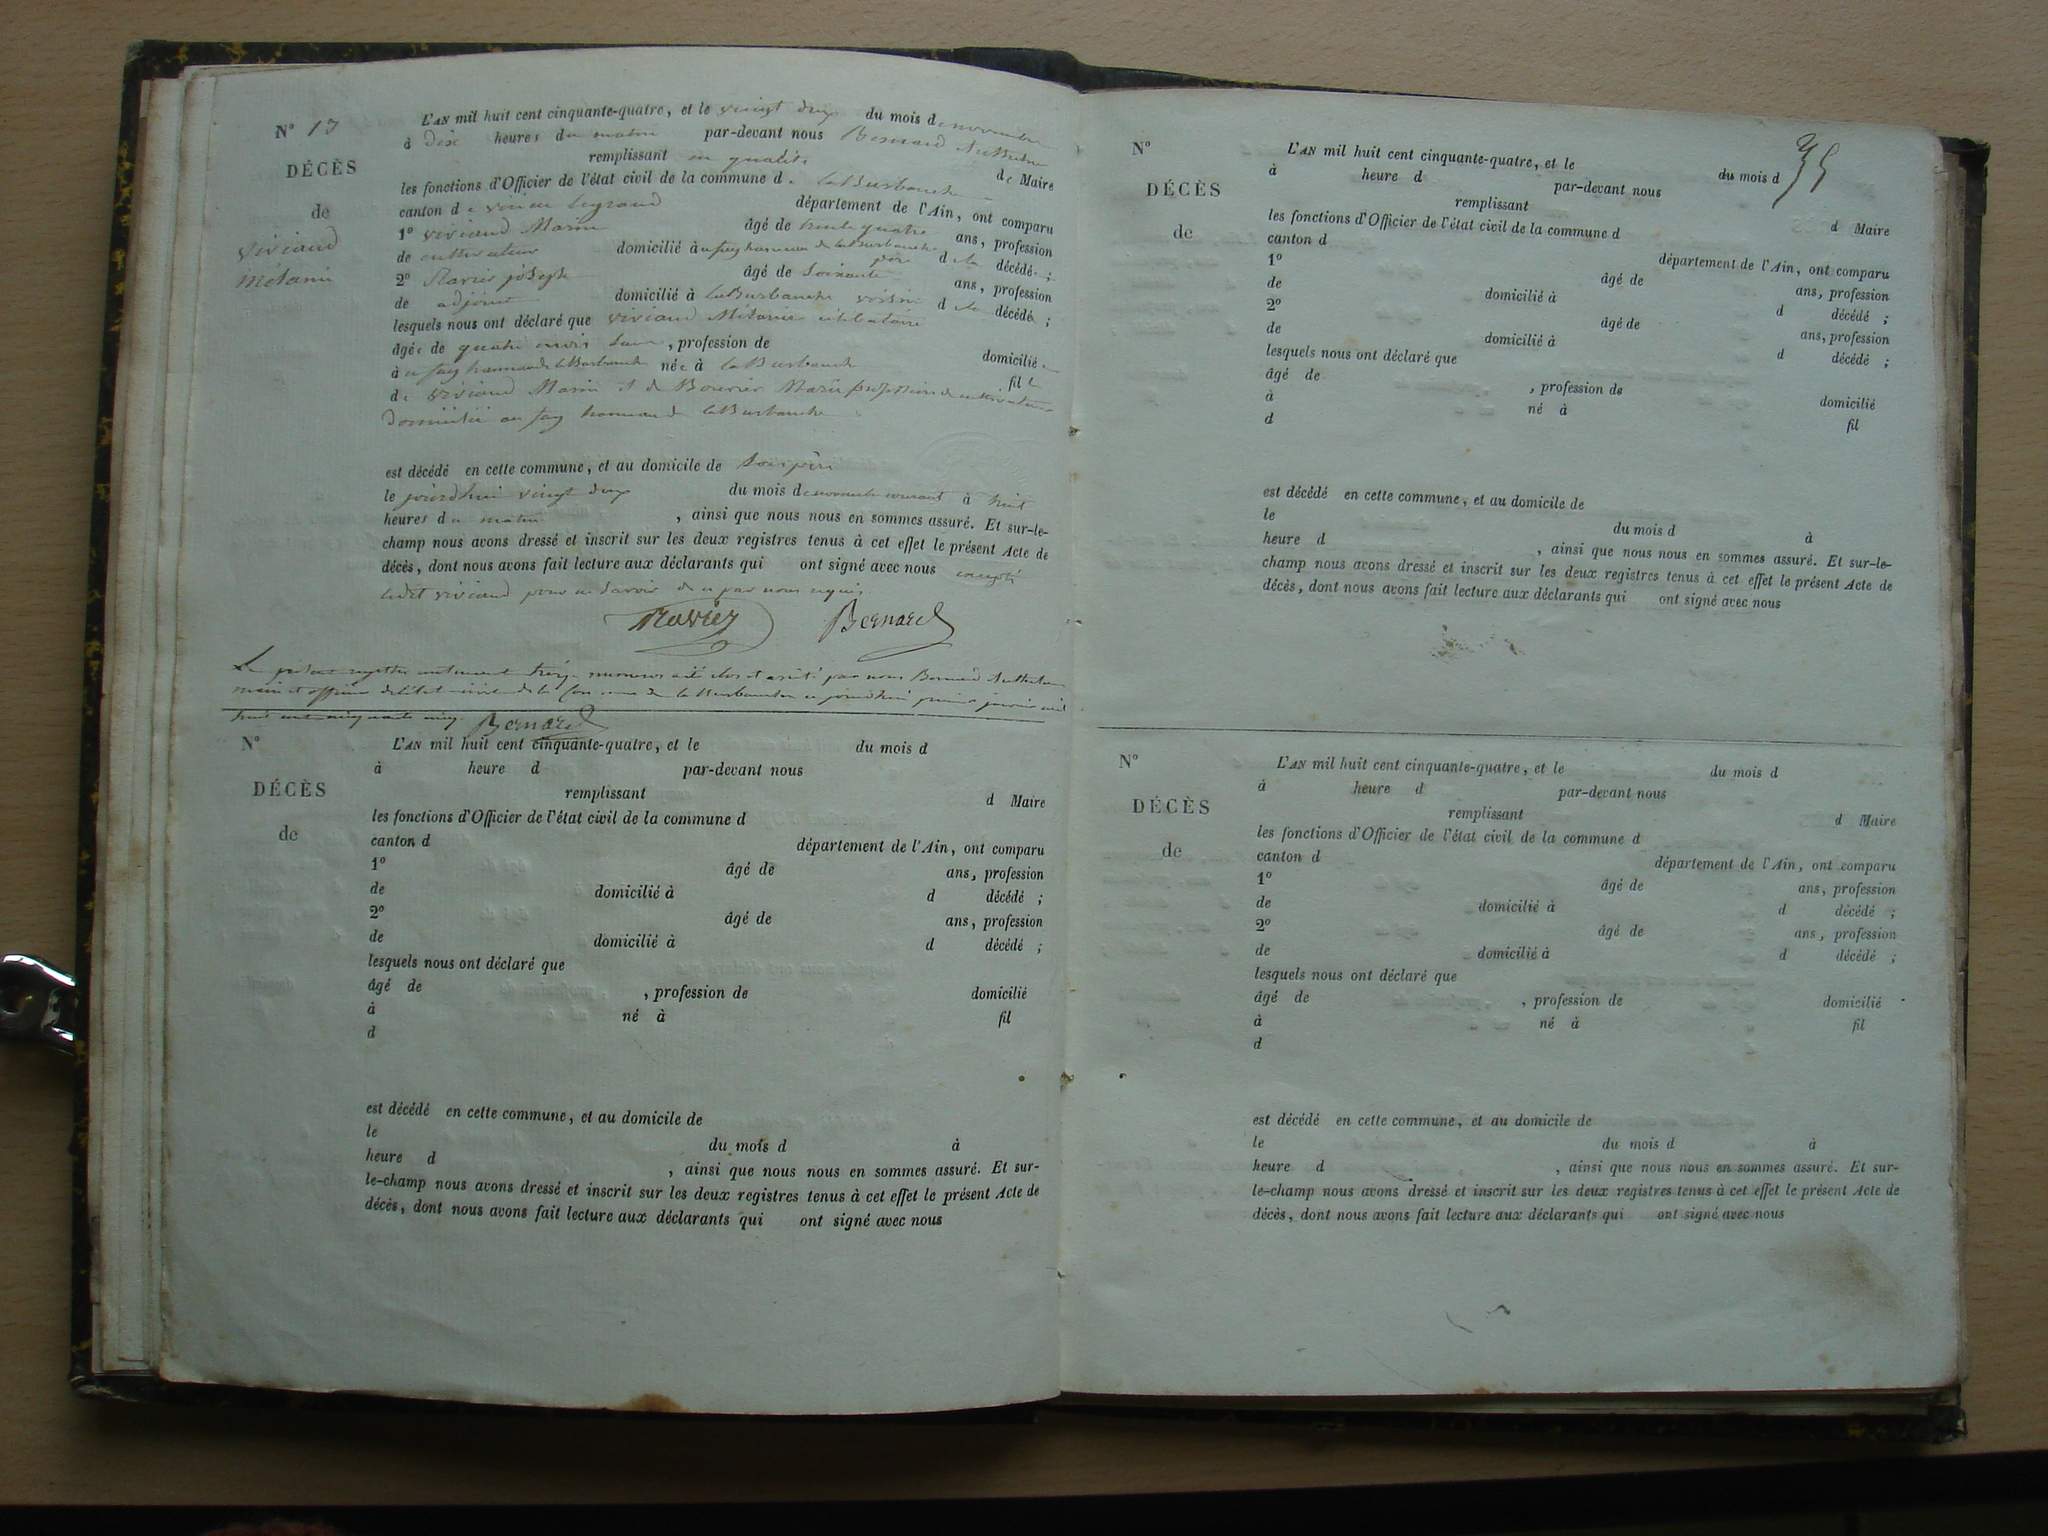 N° 13
DÉCÈS
de
viviand
mélanie
L'AN mil huit cent cinquante-quatre, et le vingt deux du mois de novembre
à dix heures du matin par-devant nous Bernard Anthelme
remplissant en qualité de Maire
les fonctions d'Officier de l'état civil de la commune de la Burbanche
canton de virieu legrand département de l'Ain, ont comparu
1° viviand Marin âgé de trente quatre ans, profession
de cultivateur domicilié au fay hameau de la Burbanche père de la décédée ;
2° Ravier joseph âgé de soixante ans, profession
de adjoint domicilié à la Burbanche voisin de la décédée ;
lesquels nous ont déclaré que viviand Mélanie célibataire
âgée de quatre mois , profession de domiciliée
à au fay hameau de la Burbanche née à la Burbanche fille
de viviand Marin et de Bouvier Marie profession de cultivateurs
domicilié au fay hameau de la Burbanche
est décédé en cette commune, et au domicile de son père
le jourdhui vingt deux du mois de novembre courant à huit
heures du matin , ainsi que nous nous en sommes assuré. Et sur-le-
champ nous avons dressé et inscrit sur les deux registres tenus à cet effet le présent Acte de
décès, dont nous avons fait lecture aux déclarants qui ont signé avec nous excepté
ledit viviand pour ne savoir de ce par nous requis
Ravier Bernard
Le présent registre contenant treize numéros a été clos et arrêté par nous Bernard Anthelme
maire et officier de l'état civil de la Commune de la Burbanche ce jourdhui premier janvier mil
huit cent cinquante cinq. Bernard
N°
DÉCÈS
de
L'AN mil huit cent cinquante-quatre, et le du mois d
à heure d par-devant nous
remplissant d Maire
les fonctions d'Officier de l'état civil de la commune d
canton d département de l'Ain, ont comparu
1° âgé de ans, profession
de domicilié à d décédé ;
2° âgé de ans, profession
de domicilié à d décédé ;
lesquels nous ont déclaré que
âgé de , profession de domicilié
à né à fil
d
est décédé en cette commune, et au domicile de
le du mois d à
heure d , ainsi que nous nous en sommes assuré. Et sur-
le-champ nous avons dressé et inscrit sur les deux registres tenus à cet effet le présent Acte de
décès, dont nous avons fait lecture aux déclarants qui ont signé avec nous
35
N°
DÉCÈS
de
L'AN mil huit cent cinquante-quatre, et le du mois d
à heure d par-devant nous
remplissant d Maire
les fonctions d'Officier de l'état civil de la commune d
canton d département de l'Ain, ont comparu
1° âgé de ans, profession
de domicilié à d décédé ;
2° âgé de ans, profession
de domicilié à d décédé ;
lesquels nous ont déclaré que
âgé de , profession de domicilié
à né à fil
d
est décédé en cette commune, et au domicile de
le du mois d à
heure d , ainsi que nous nous en sommes assuré. Et sur-le-
champ nous avons dressé et inscrit sur les deux registres tenus à cet effet le présent Acte de
décès, dont nous avons fait lecture aux déclarants qui ont signé avec nous
N°
DÉCÈS
de
L'AN mil huit cent cinquante-quatre, et le du mois d
à heure d par-devant nous
remplissant d Maire
les fonctions d'Officier de l'état civil de la commune d
canton d département de l'Ain, ont comparu
1° âgé de ans, profession
de domicilié à d décédé ;
2° âgé de ans, profession
de domicilié à d décédé ;
lesquels nous ont déclaré que
âgé de , profession de domicilié
à né à fil
d
est décédé en cette commune, et au domicile de
le du mois d à
heure d , ainsi que nous nous en sommes assuré. Et sur-
le-champ nous avons dressé et inscrit sur les deux registres tenus à cet effet le présent Acte de
décès, dont nous avons fait lecture aux déclarants qui ont signé avec nous